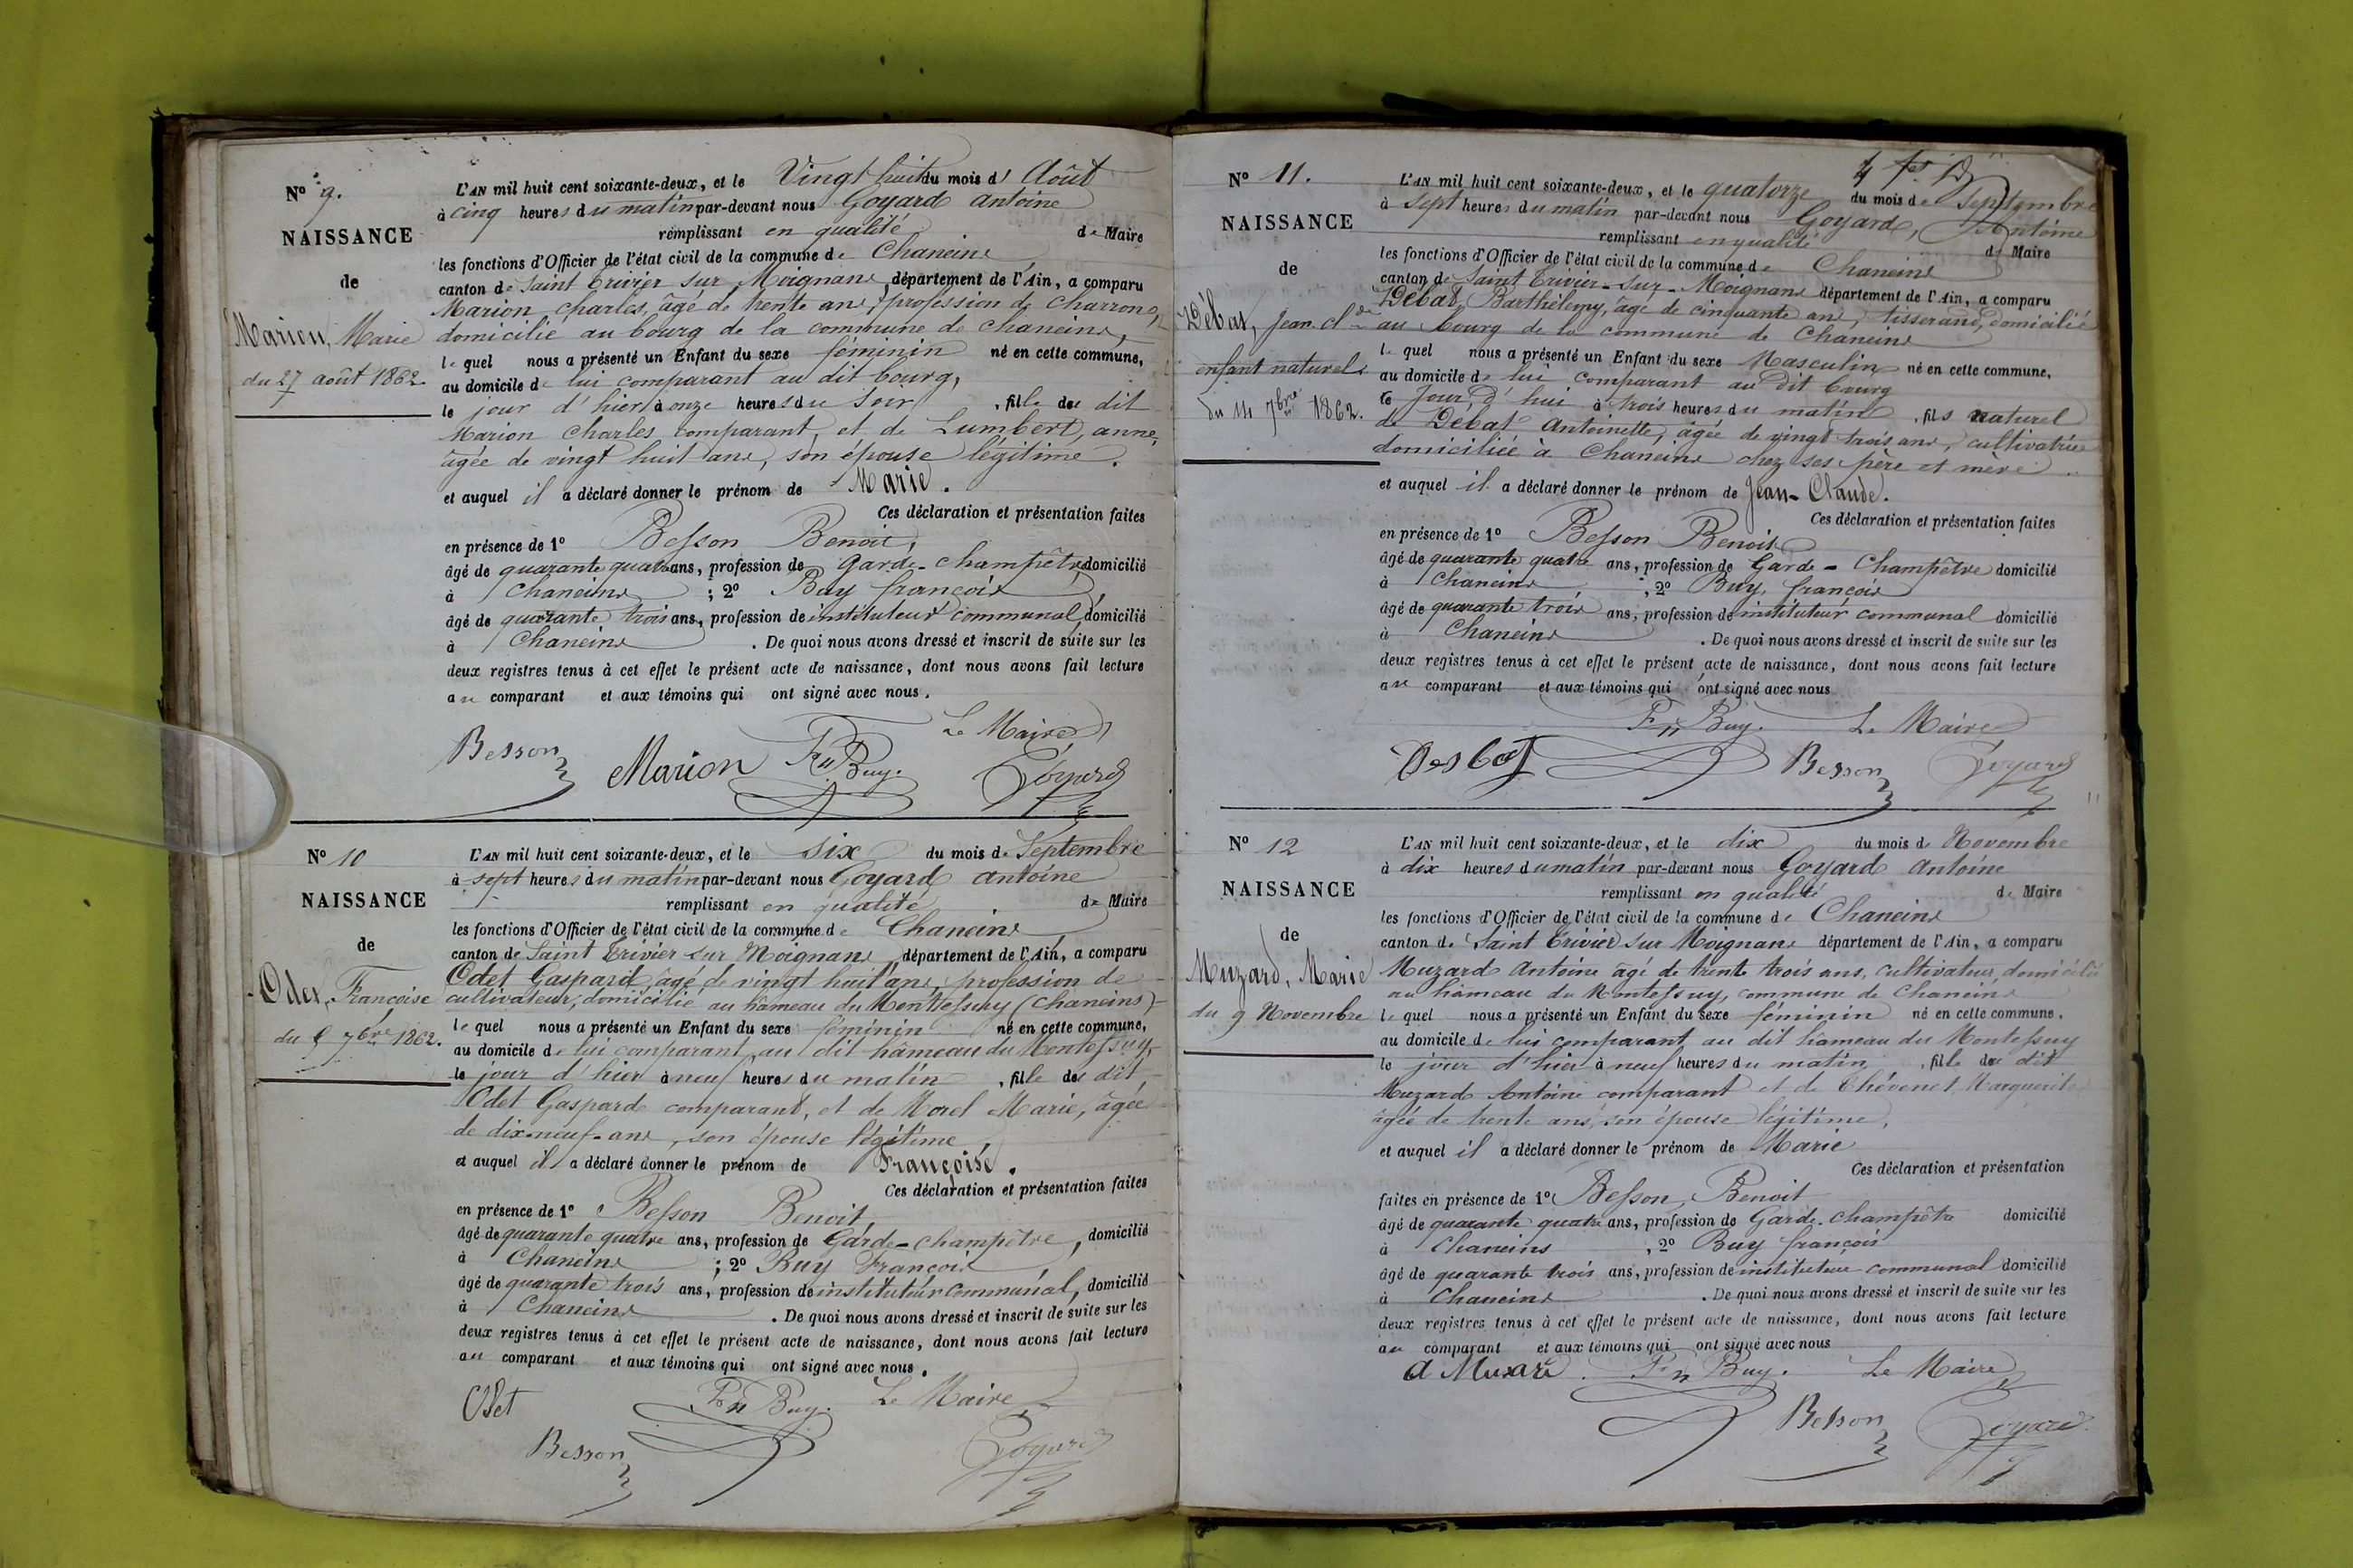 N° 9.
NAISSANCE
de
Marion, Marie
du 27 août 1862.
L'AN mil huit cent soixante-deux, et le Vingt huit du mois d' Août
à cinq heures du matin par-devant nous Goyard antoine
remplissant en qualité de Maire
les fonctions d'Officier de l'état civil de la commune de Chaneins
canton de Saint Trivier sur Moignans, département de l'Ain, a comparu
Marion charles, âgé de trente ans, profession de charron,
domicilié au bourg de la commune de chaneins,
lequel nous a présenté un Enfant du sexe féminin né en cette commune,
au domicile de lui comparant au dit bourg,
le jour d'hier à onze heures du soir, fille du dit
Marion Charles comparant, et de Lumbert, anne,
âgée de vingt huit ans, son épouse légitime.
et auquel il a déclaré donner le prénom de Marie.
Ces déclaration et présentation faites
en présence de 1° Besson Benoit,
âgé de quarante quatre ans, profession de Garde-champêtre domicilié
à Chaneins ; 2° Buy françois
âgé de quarante trois ans, profession de instituteur communal, domicilié
à Chaneins . De quoi nous avons dressé et inscrit de suite sur les
deux registres tenus à cet effet le présent acte de naissance, dont nous avons fait lecture
au comparant et aux témoins qui ont signé avec nous.
Le Maire
Besson Marion Fn Buy. Goyard
N° 10
NAISSANCE
de
Odet, Françoise
du 5 7bre 1862.
L'AN mil huit cent soixante-deux, et le six du mois de Septembre
à sept heures du matin par-devant nous Goyard antoine
remplissant en qualité de Maire
les fonctions d'Officier de l'état civil de la commune de Chaneins
canton de Saint Trivier sur Moignans, département de l'Ain, a comparu
Odet Gaspard, âgé de vingt huit ans, profession de
cultivateur, domicilié au hâmeau du Montessuy (chaneins)
lequel nous a présenté un Enfant du sexe féminin né en cette commune,
au domicile de lui comparant, au dit hâmeau du Montessuy,
le jour d'hier à neuf heures du matin, fille du dit
Odet Gaspard comparant, et de Morel Marie, âgée
de dix-neuf-ans, son épouse légitime,
et auquel il a déclaré donner le prénom de Françoise.
Ces déclaration et présentation faites
en présence de 1° Besson Benoit,
âgé de quarante quatre ans, profession de Garde-champêtre, domicilié
à Chaneins ; 2° Buy François
âgé de quarante trois ans, profession de instituteur communal, domicilié
à Chaneins . De quoi nous avons dressé et inscrit de suite sur les
deux registres tenus à cet effet le présent acte de naissance, dont nous avons fait lecture
au comparant et aux témoins qui ont signé avec nous.
Odet Fn Buy. Le Maire
Besson Goyard
N° 11.
NAISSANCE
de
Débat, Jean-Cl.de
enfant naturel
du 14 7bre 1862.
L'AN mil huit cent soixante-deux, et le quatorze du mois de Septembre
à sept heures du matin par-devant nous Goyard, Antoine
remplissant en qualité de Maire
les fonctions d'Officier de l'état civil de la commune de Chaneins
canton de Saint Trivier-sur-Moignans département de l'Ain, a comparu
Débat, Barthélemy, âgé de cinquante ans, tisserand, domicilié
au bourg de la commune de Chaneins
lequel nous a présenté un Enfant du sexe Masculin né en cette commune,
au domicile de lui comparant au dit bourg
le Jour d'hui à trois heures du matin, fils naturel
de Débat Antoinette, âgée de vingt trois ans, cultivatrice
domiciliée à Chaneins chez ses père et mère.
et auquel il a déclaré donner le prénom de Jean-Claude.
Ces déclaration et présentation faites
en présence de 1° Besson Benoit
âgé de quarante quatre ans, profession de Garde-Champêtre domicilié
à Chaneins ; 2° Buy, françois
âgé de quarante trois ans, profession de instituteur communal domicilié
à Chaneins . De quoi nous avons dressé et inscrit de suite sur les
deux registres tenus à cet effet le présent acte de naissance, dont nous avons fait lecture
au comparant et aux témoins qui ont signé avec nous
Fn Buy. Le Maire
Desbat Besson Goyard
N° 12
NAISSANCE
de
Muzard, Marie
du 9 Novembre
L'AN mil huit cent soixante-deux, et le dix du mois de Novembre
à dix heures du matin par-devant nous Goyard Antoine
remplissant en qualité de Maire
les fonctions d'Officier de l'état civil de la commune de Chaneins
canton de Saint Trivier sur Moignans département de l'Ain, a comparu
Muzard Antoine âgé de trente trois ans, cultivateur, domicilié
au hâmeau du Montessuy, commune de Chaneins
lequel nous a présenté un Enfant du sexe féminin né en cette commune,
au domicile de lui comparant, au dit hameau du Montessuy
le jour d'hier à neuf heures du matin, fille du dit
Muzard Antoine comparant et de Thévenet Marguerite
âgée de trente ans, son épouse légitime,
et auquel il a déclaré donner le prénom de Marie
Ces déclaration et présentation
faites en présence de 1° Besson, Benoit
âgé de quarante quatre ans, profession de Garde-champêtre domicilié
à Chaneins , 2° Buy françois
âgé de quarante trois ans, profession de instituteur communal domicilié
à Chaneins . De quoi nous avons dressé et inscrit de suite sur les
deux registres tenus à cet effet le présent acte de naissance, dont nous avons fait lecture
au comparant et aux témoins qui ont signé avec nous
a Muzard Fn Buy. Le Maire
Besson Goyard